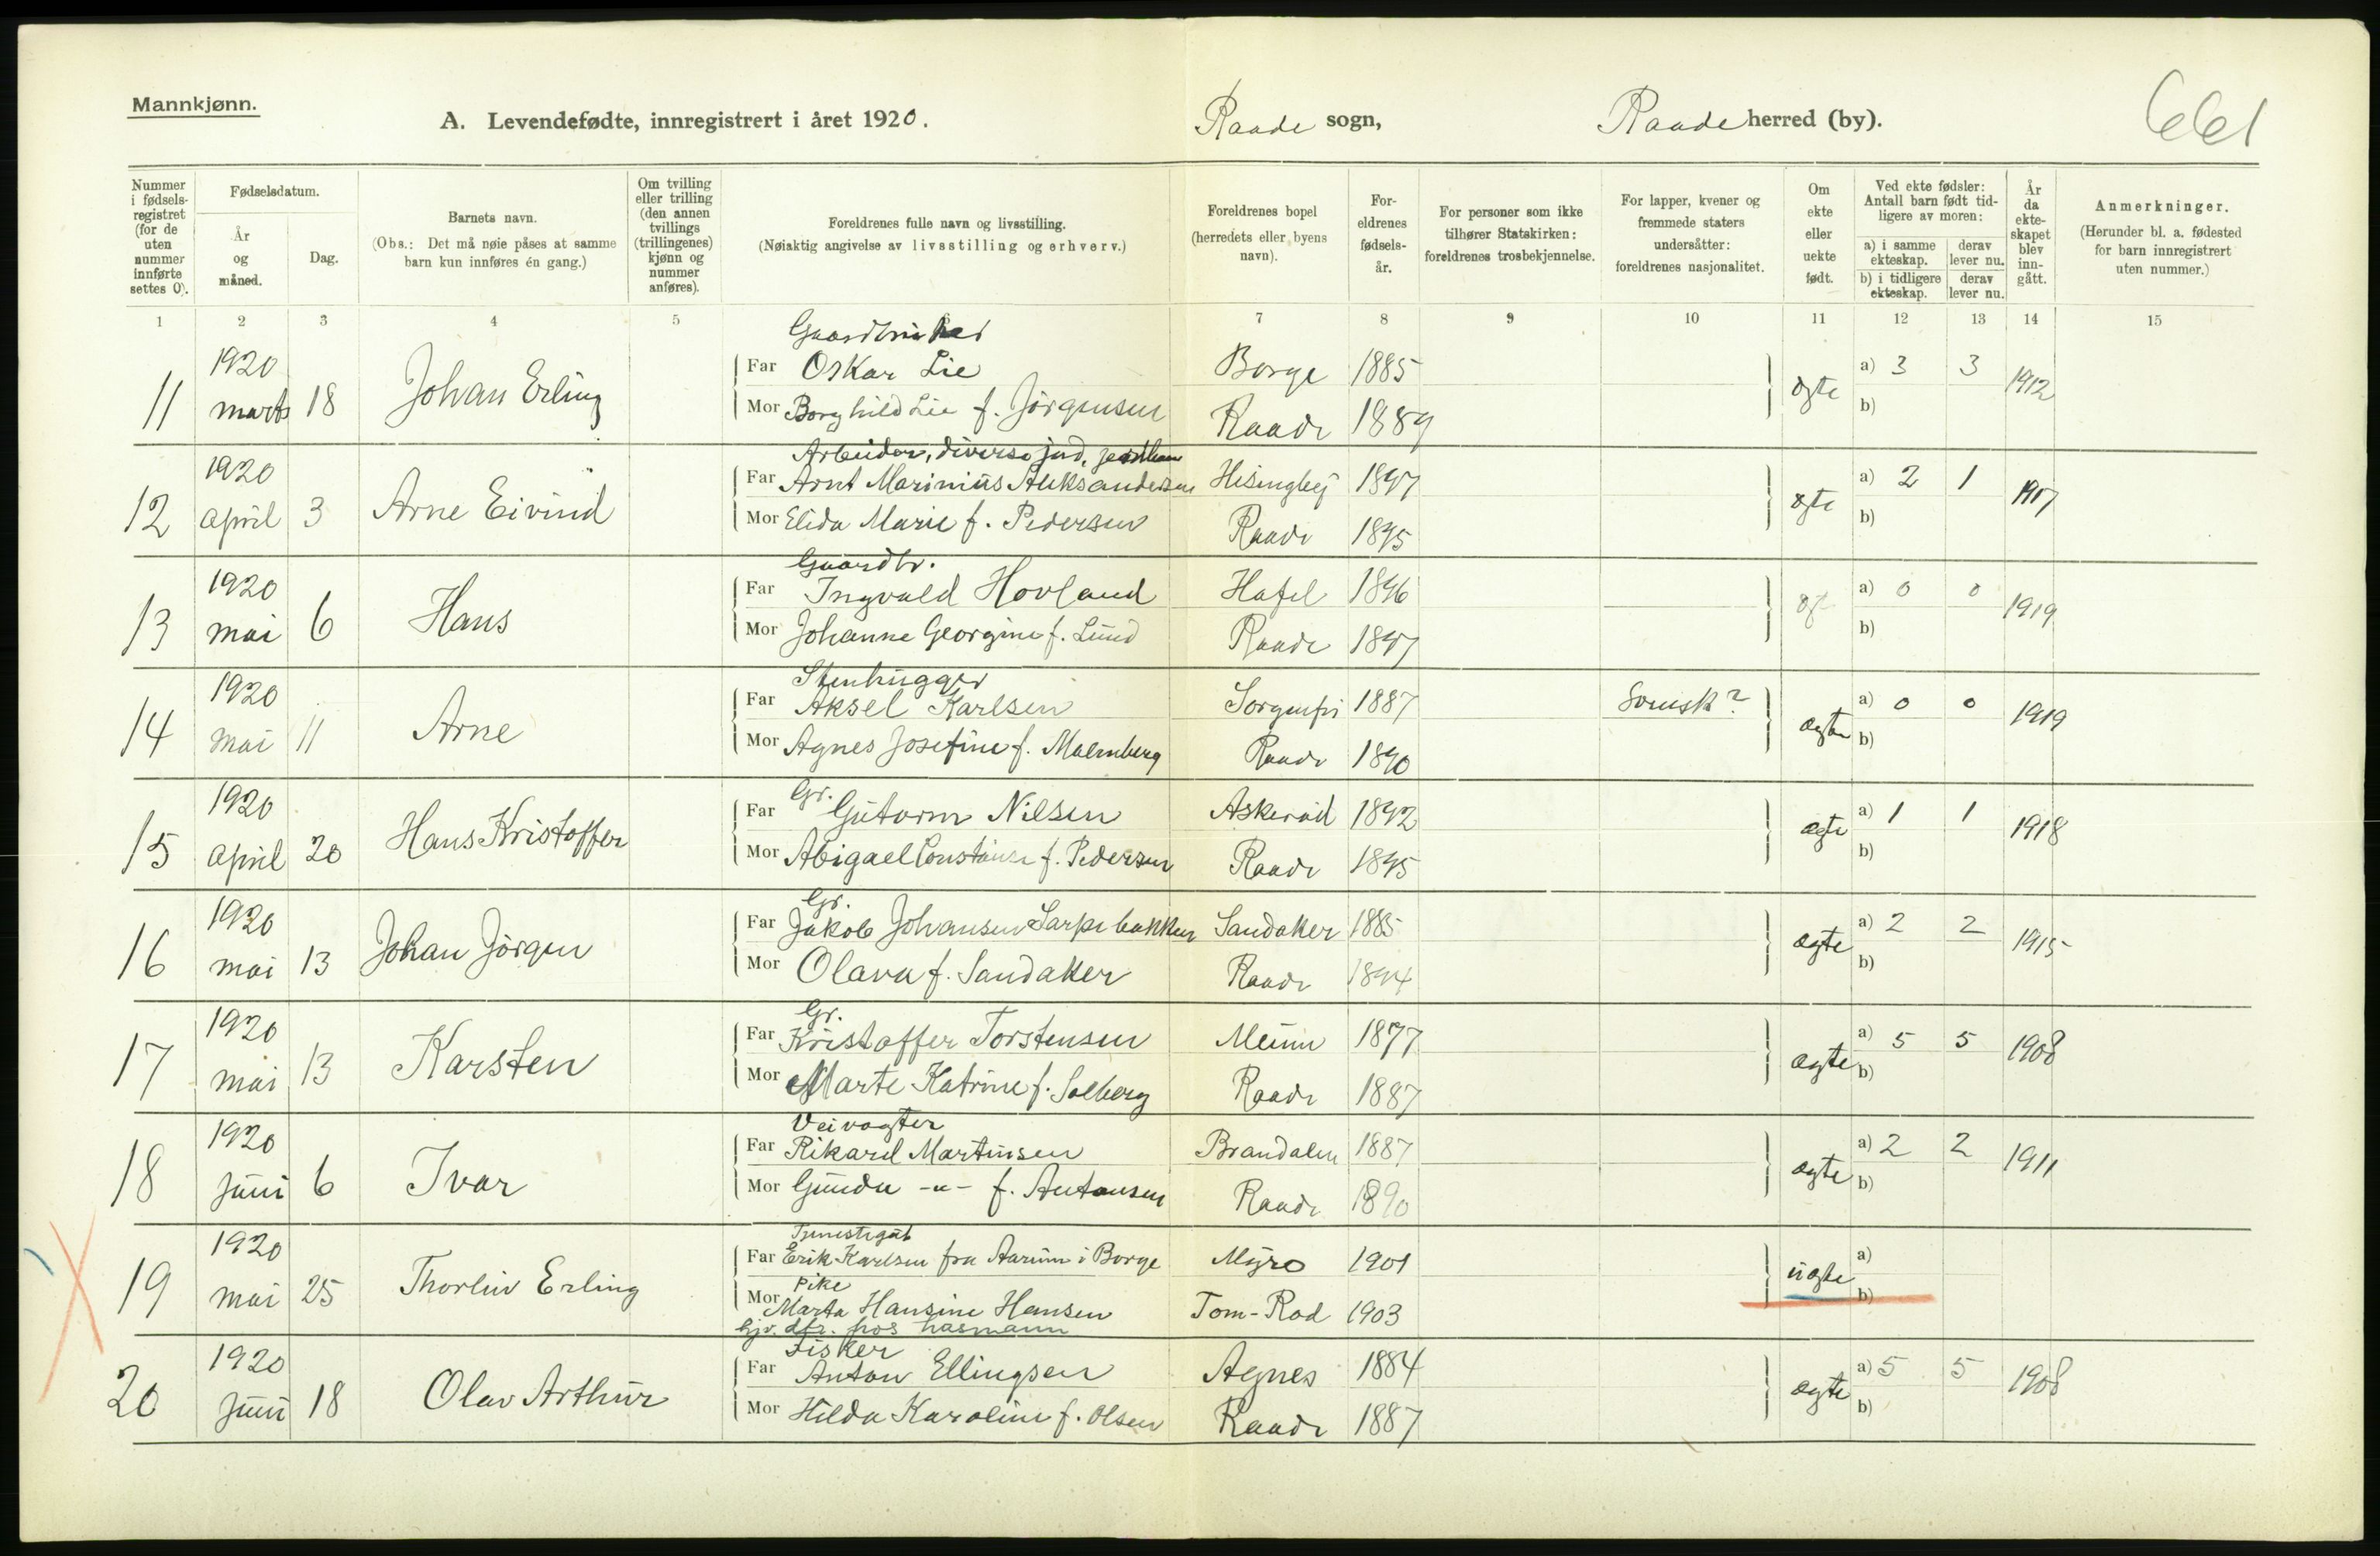 Mannkjønn.
A. Levendefødte, innregistrert i året 1920.
Raade sogn,
Raade herred (by).
661
Nummer i fødsels-registret (for de uten nummer innførte settes 0).
Fødselsdatum.
År og måned.
Dag.
Barnets navn.
(Obs.: Det må nøie påses at samme barn kun innføres én gang.)
Om tvilling eller trilling (den annen tvillings (trillingenes) kjønn og nummer anføres).
Foreldrenes fulle navn og livsstilling.
(Nøiaktig angivelse av livsstilling og erhverv.)
Foreldrenes bopel (herredets eller byens navn).
For-eldrenes fødsels-år.
For personer som ikke tilhører Statskirken: foreldrenes trosbekjennelse.
For lapper, kvener og fremmede staters undersåtter: foreldrenes nasjonalitet.
Om ekte eller uekte født.
Ved ekte fødsler: Antall barn født tid-ligere av moren:
a) i samme ekteskap. derav lever nu.
b) i tidligere ekteskap. derav lever nu.
År da ekte-skapet blev inn-gått.
Anmerkninger.
(Herunder bl. a. fødested for barn innregistrert uten nummer.)
1 2 3 4 5 7 8 9 10 11 12 13 14 15
Gaardbruker
1920 Far Oskar Lie Borge 1885 a) 3 3
11 marts 18 Johan Erling Mor Borghild Lie f. Jörgensen Raade 1889 ogte b) 1912
Arbeider, diverse
1920 Far Arnt Marinius Aleksandersen 1897 a) 2 1
12 april 3 Arne Eivind Mor Elida Marie f. Pedersen Raade 1895 ogte b) 1917
Gaardbr.
1920 Far Ingvald Hovland Hafel 1896 a) 0 0
13 mai 6 Hans Mor Johanne Georgine f. Lund Raade 1897 b) 1919
Stenhugger
1920 Far Aksel Karlsen Sorgenfri 1887 Svensk? a) 0 0
14 mai 11 Arne Mor Agnes Josefine f. Malmberg Raade 1890 ægte b) 1919
Gr.
1920 Far Gutorm Nilsen Askerød 1892 a) 1 1
15 april 20 Hans Kristoffer Mor Abigael Constanse f. Pedersen Raade 1895 ægte b) 1918
Gr.
1920 Far Jakob Johansen Sarpebakken Sandaker 1885 a) 2 2
16 mai 13 Johan Jörgen Mor Olava f. Sandaker Raade 1894 ægte b) 1915
Gr.
1920 Far Kristoffer Torstensen 1877 a) 5 5
17 mai 13 Karsten Mor Marte Katrine f. Solberg Raade 1887 ægte b) 1908
Veivogter
1920 Far Rikard Martinsen Brandalen 1887 a) 2 2
18 juni 6 Ivar Mor Gunda -"- f. Antonsen Raade 1890 ægte b) 1911
Tjenestegut
1920 Far Erik Karlsen fra Aarum i Borge Myro 1901 a)
19 mai 25 Thorleiv Erling Mor Pike Marta Hansine Hansen Tom-Rød 1903 uægte b)
Gjv. dtr. hos husmann
Fisker
1920 Far Anton Ellingsen Agnes 1884 a) 5 5
20 juni 18 Olav Arthur Mor Hilda Karoline f. Olsen Raade 1887 ægte b) 1908